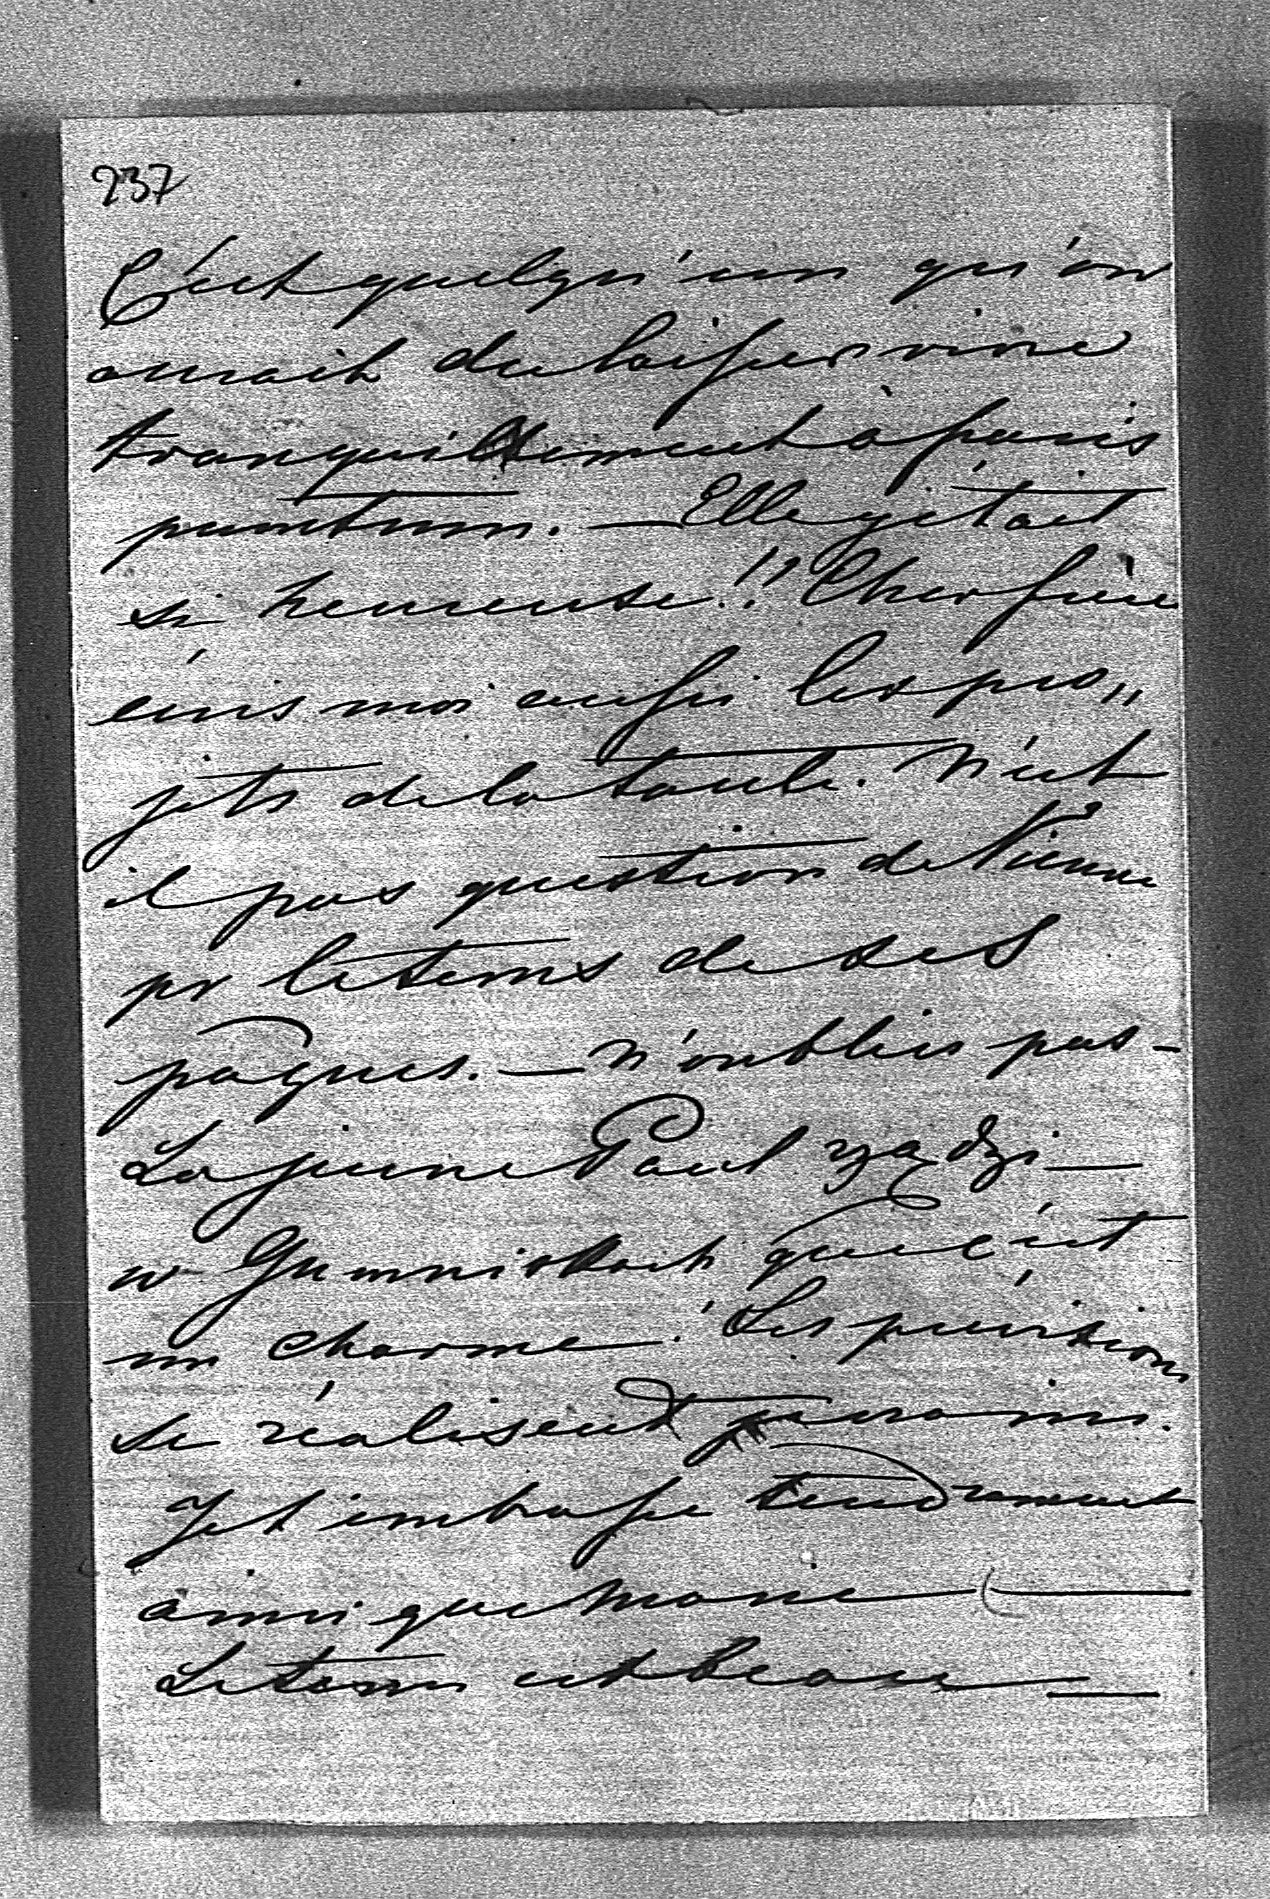 237
C'est quelqu'un qu'on
aurait du laisser vivre
tranquillement à paris
punctum. — Elle y était
si heureuse!! Cher frère
écris moi aussi les pro„
jets de la tante. N'est
il pas question de Vienne
pr le tems de ses
pâques. — N'oublies pas –
La jeune Paul rządzi —
w Gumniskach que c'est
un charme! Les prévisions
se réalisent
Je t'embrasse tendrement
ainsi que Marie —
Le tems est beau —